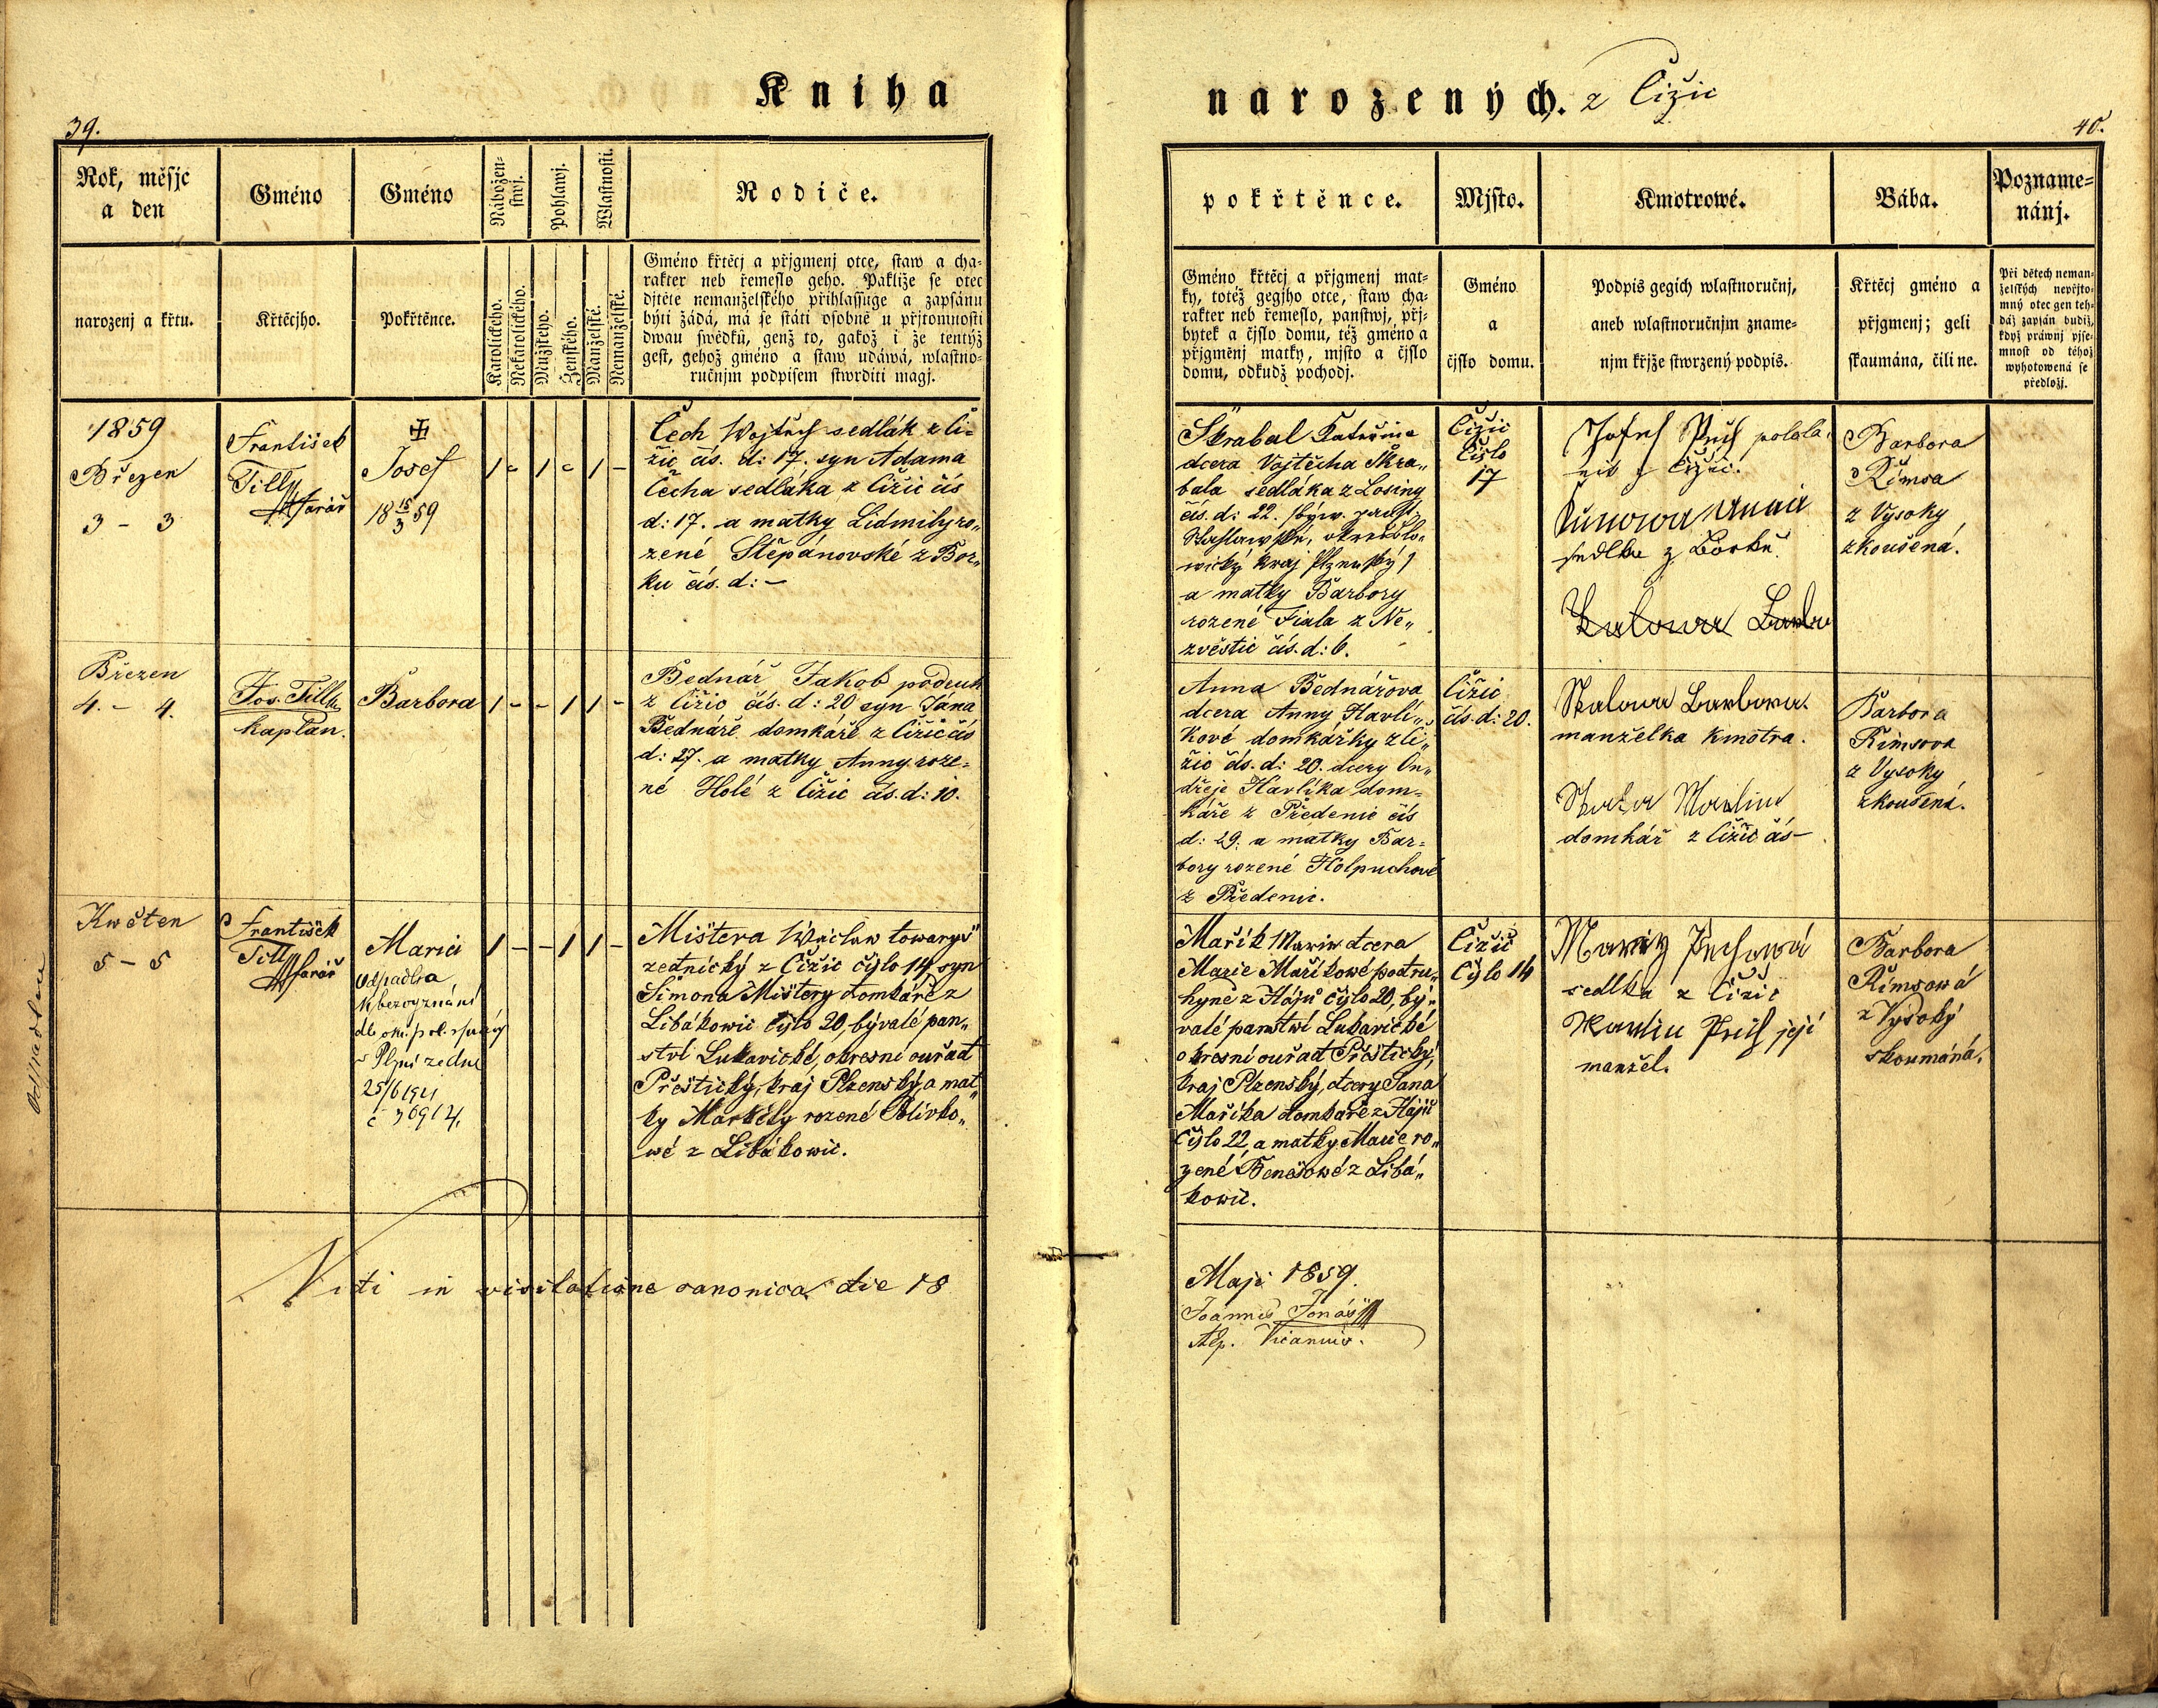 Kniha
39.
Rok, měsjc
a den
Gméno
Gméno
Nábožen-
stwj.
Pohlawj.
Wlastnosti.
Rodiče.
narozenj a křtu.
Křtěcjho.
Pokřtěnce.
Katolického.
Nekatolického.
Mužského.
Ženského.
Manželské.
Nemanželské.
Gméno křtěcj a přjgmenj otce, staw a cha-
rakter neb řemeslo geho. Pakliže se otec
djtěte nemanželského přihlassuge a zapsánu
býti žádá, má se státi osobně u přjtomnosti
dwau swědků, genž to, gakož i že tentýž
gest, gehož gméno a staw udáwá, wlastno-
ručnjm podpisem stwrditi magj.
1859
Březen
3 - 3
František
Tilly
farář
Josef
18 15/3 59
Čech Wojtěch sedlák z Či-
žic čís. d: 17. syn Adama
Čecha sedláka z Čižic čís
d: 17. a matky Lidmily ro„
zené Štěpánovské z Bor„
ku čís. d: –
Březen
4. - 4.
Jos. Tilly
kaplan.
Barbora
Bednář Jakob podruh
z Čižic čís. d: 20 syn Jána
Bednáře domkáře z Čižic čís
d: 27. a matky Anny roze=
né Holé z Čižic čís. d: 10.
Kwěten
5 - 5
František
Tilly
farář
Marie
Odpadlka
k bezvyznání
v Plzni ze dne
25/6 1921
č 36914.
Mištera Wáclaw towaryš
zednický z Čižic čjslo 14, syn
Šimona Mištery domkáře z
Libákowic čjslo 20, bývalé pan„
ství Lukavické, okresní ouřad
Přeštický, kraj Plzenský, a mat„
ky Markéty rozené Polívko„
wé z Libákowic.
Vidi in visitatione canonica die 18
narozených. z Čižic
40.
pokřtěnce.
Mjsto.
Kmotrowé.
Bába.
Pozname-
nánj.
Gméno křtěcj a přjgmenj mat-
ky, totéž gegjho otce, staw cha-
rakter neb řemeslo, panstwj, přj-
bytek a čjslo domu, též gméno a
přjgměnj matky, mjsto a čjslo
domu, odkudž pocházj.
Gméno
a
čjslo domu.
Podpis gegich wlastnoručnj,
aneb wlastnoručnjm zname-
njm křjže stwrzený podpis.
Křtěcj gméno a
přjgmenj; geli
skaumána, čili ne.
Při dětech neman-
želských nepřjto-
mný otec gen teh-
dáž zapsán budiž,
když práwnj pjse-
mnost od téhož
wyhotowená se
předložj.
Škrabal Kateřina
dcera Vojtěcha Škra„
bala sedláka z Losiny
čís. d: 22. (býw. panst.
Štáhlawské, okres Blo„
wický kraj Plzenský)
a matky Barbory
rozené Fiala z Ne„
zvěstic čís. d: 6.
Čižic
Čislo
17
Josef Pech
z Čižic.
Anna
sedlka z Borku
Barbora
Římsa
z Vysoky
zkoušená.
Anna Bednářova
dcera Anny Havlí„
kové domkářky z Či„
žic čís. d: 20. dcery On„
dřeje Havlíka dom=
káře z Předenic čís
d: 29. a matky Bar=
bory rozené Holpuchové
z Předenic.
Čižic
čís. d: 20.
Skalowa Barbora.
manželka kmotra.
Skala Martin
domkář z Čižic čís –
Barbora
Římsova
z Vysoky
zkoušená.
Mařík Marie dcera
Marie Maříkowé podru„
hyně z Hájů čjslo 20, bý„
valé panstwí Lukavické
okresní ouřad Přeštický,
kraj Plzenský, dcery Jana
Maříka domkáře z Hájů
čjslo 22, a matky Marie ro„
zené Benešowé z Libá„
kowic.
Čižic
Čjslo 14
Pechowá
sedlka z Čižic
Martin Pech její
manžel.
Barbora
Římsowá
z Vysoký
skoumáná.
Maji 1859.
Joannes Jonáš
Ep. Vicarius.